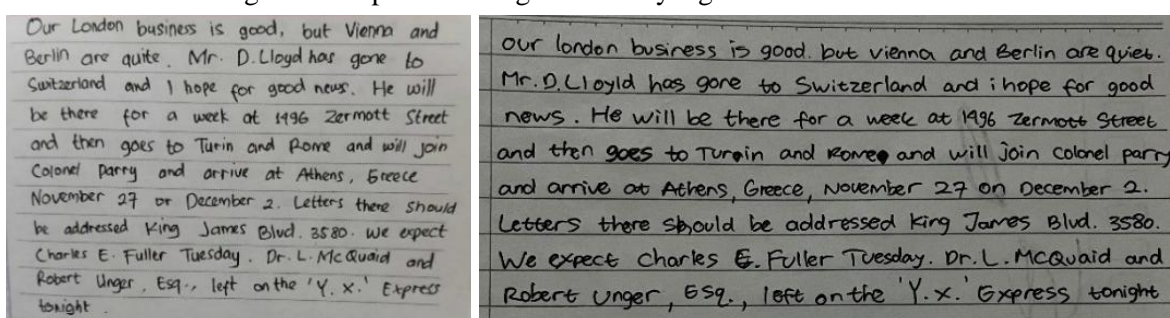 Our London business is good, but Vienna and
Berlin are quite. Mr. D. Lloyd has gone to
Switzerland and I hope for good news. He will
be there for a week at 1496 Zermott Street
and then goes to Turin and Rome and will join
Colonel Parry and arrive at Athens, Greece
November 27 or December 2. Letters there should
be addressed King James Blvd. 3580. We expect
Charles E. Fuller Tuesday. Dr. L. McQuaid and
Robert Unger, Esq., left on the 'Y. X.' Express
tonight.
our london business is good. but vienna and Berlin are quiet.
Mr. D. Lloyld has gone to Switzerland and i hope for good
news. He will be there for a week at 1496 Zermott Street
and then goes to Turoin and Rome and will join colonel parry
and arrive at Athens, Greece, November 27 on December 2.
Letters there should be addressed king James Blvd. 3580.
We expect charles E. Fuller Tuesday. Dr. L. McQuaid and
Robert unger, ESq., left on the 'Y. x.' Express tonight